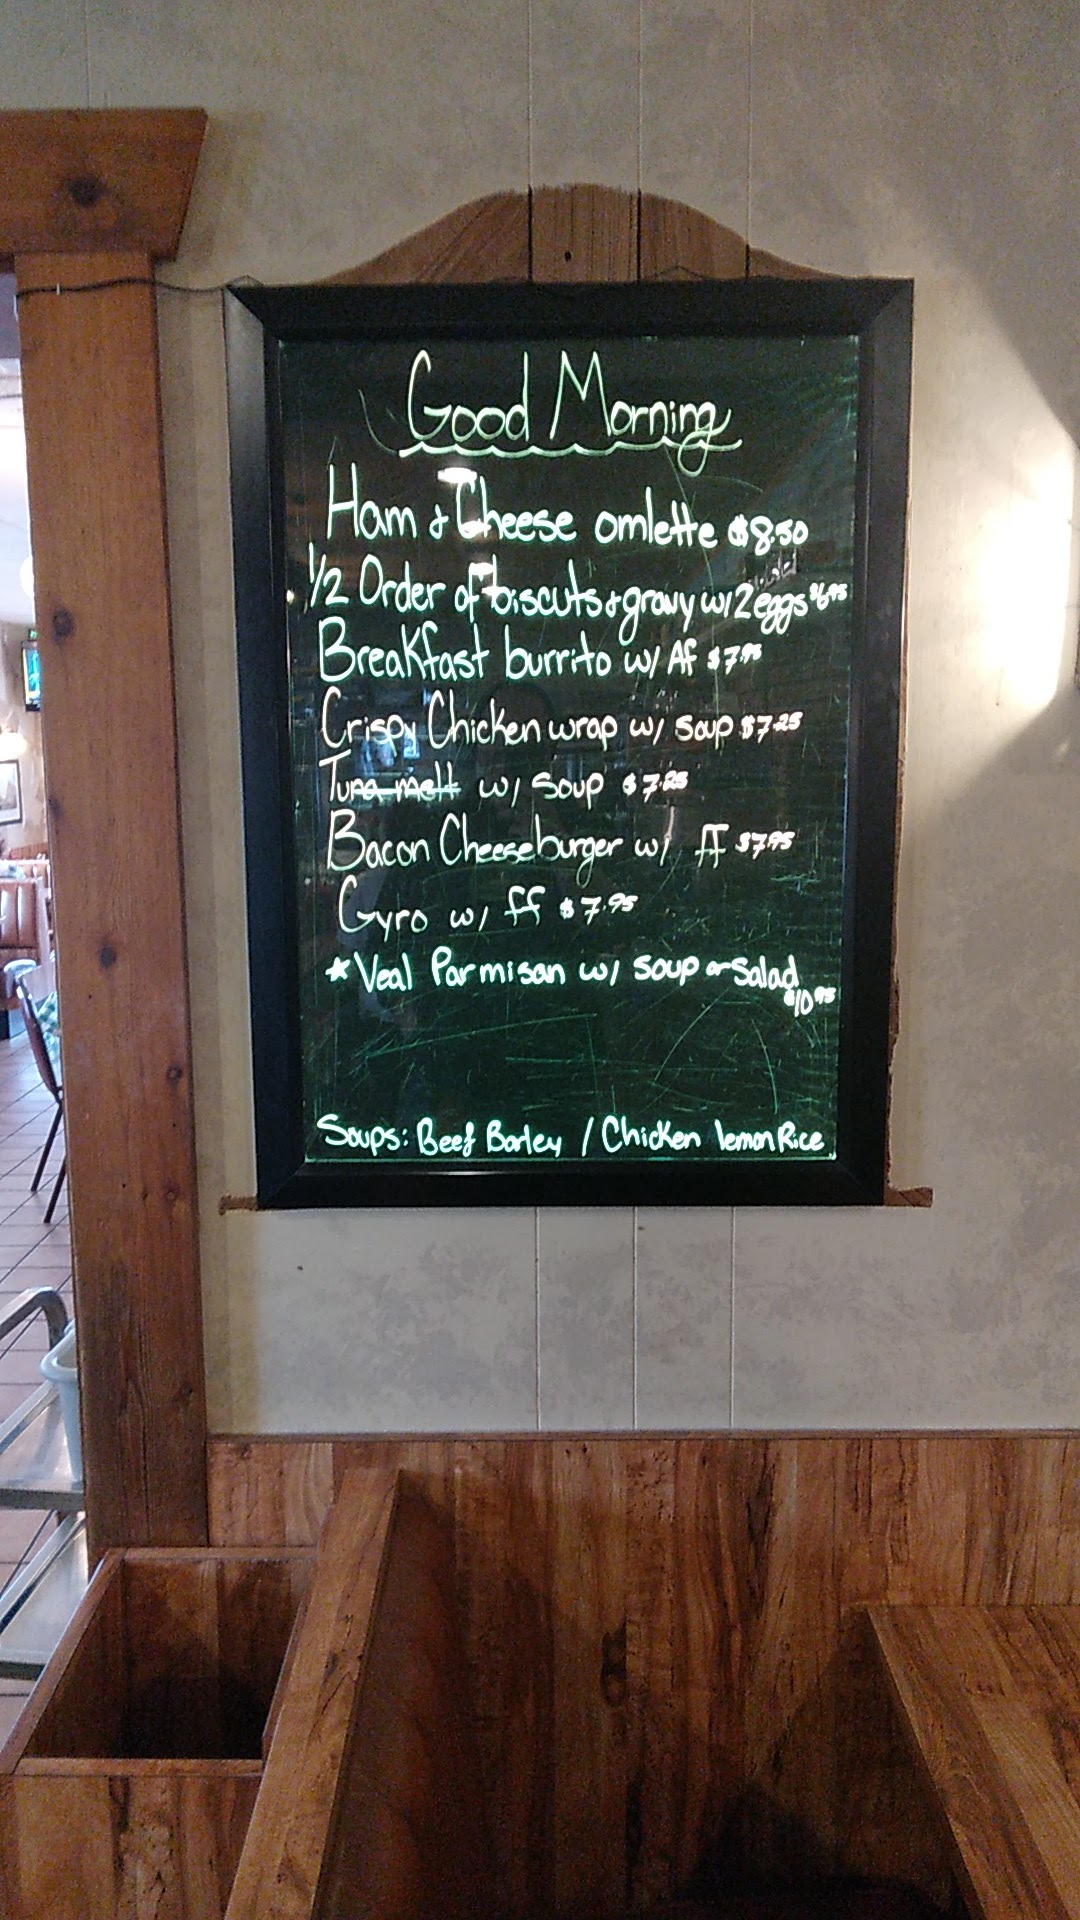 Good Morning
Ham & Cheese omlette $8.50
1/2 Order of biscuts & gravy w/ 2 eggs $6.95
Breakfast burrito w/ Af $7.95
Crispy Chicken wrap w/ Soup $7.25
Tuna melt w/ Soup $7.25
Bacon Cheeseburger w/ FF $7.95
Gyro w/ ff $7.95
* Veal Parmisan w/ Soup or Salad
$10.95
Soups: Beef Barley / Chicken lemon Rice